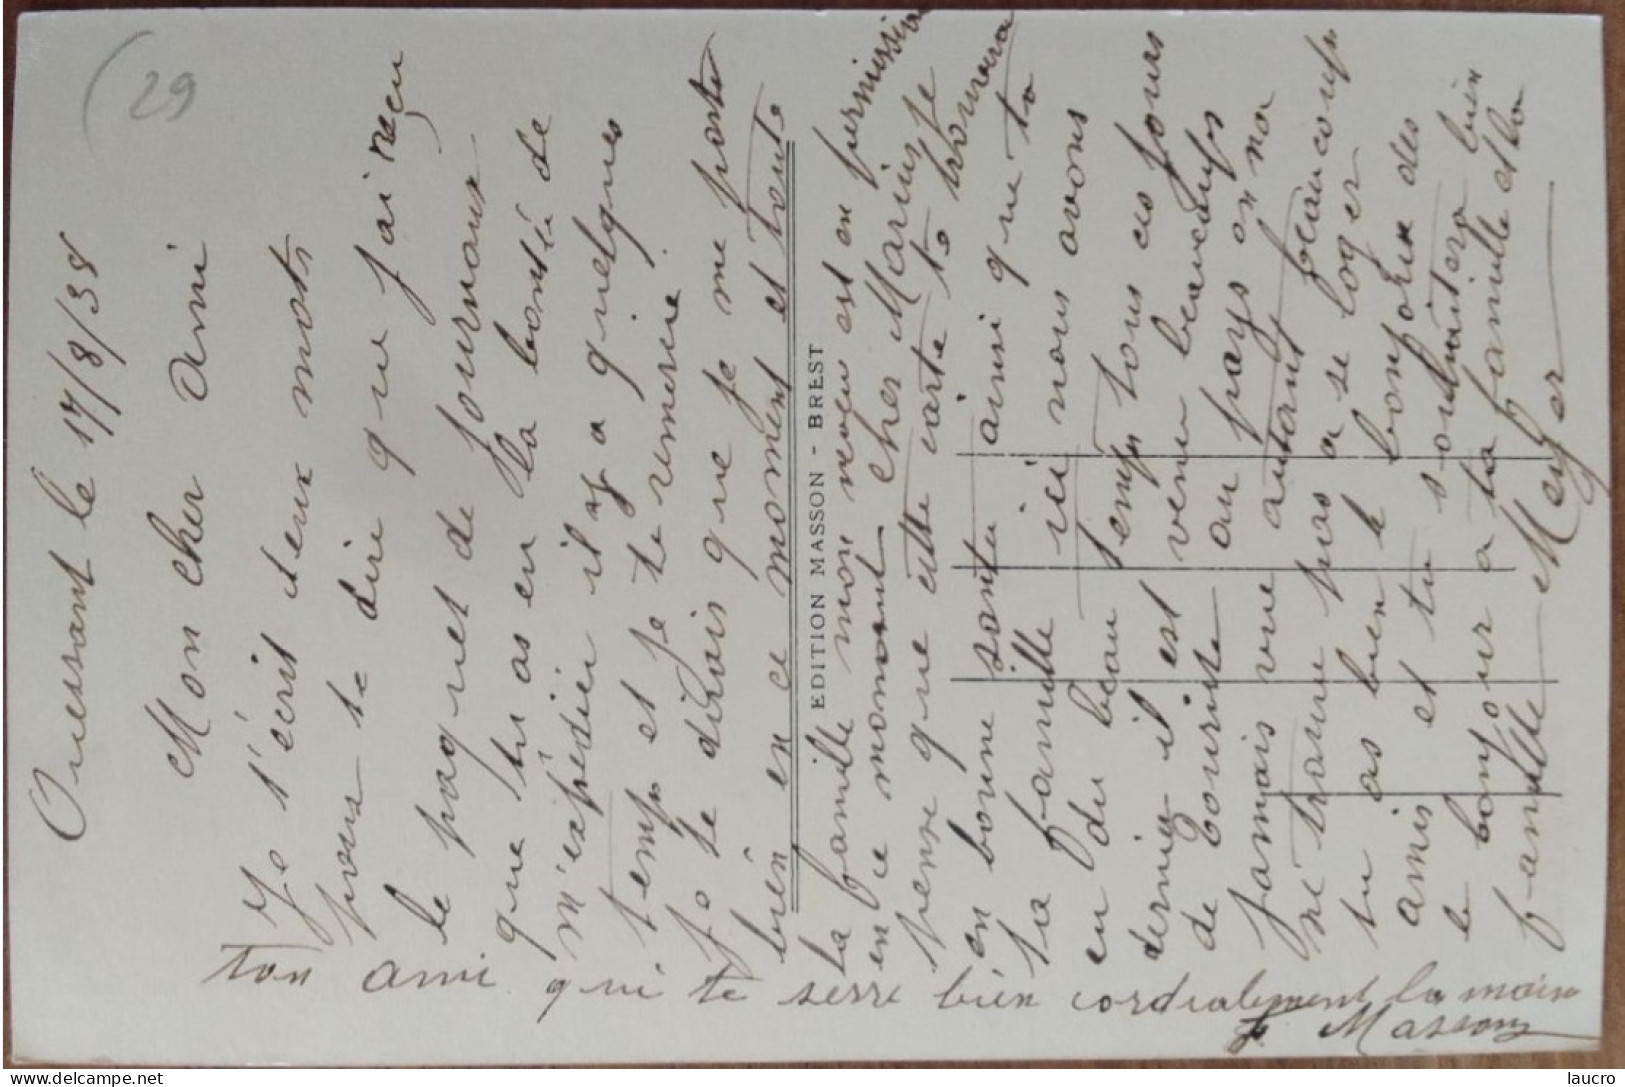 (29
Ouessant le 17/8/38
Mon cher Ami
Je t'écrit deux mots
pour te dire que j'ai reçu
le paquet de journaux
que tu as eu la bonté de
m'expédier il y a quelques
temps et je te remercie
je te dirais que je me porte
bien en ce moment et toute
EDITION MASSON - BREST
la famille mon neveu est en permission
en ce moment cher Marius je
pense que cette carte te trouvera
en bonne santé ainsi que ta
ta famille ici nous avons
eu du beau temps tous ces jours
dernier il est venu beaucoups
de Touriste au pays on na
jamais vue autant beaucoups
ne trouve pas a se loger
tu as bien le bonjour des
amis et tu souhaitera bien
le bonjour a ta famille et la
famille Meyer
ton ami qui te serre bien cordialement la main
Masson
laucro